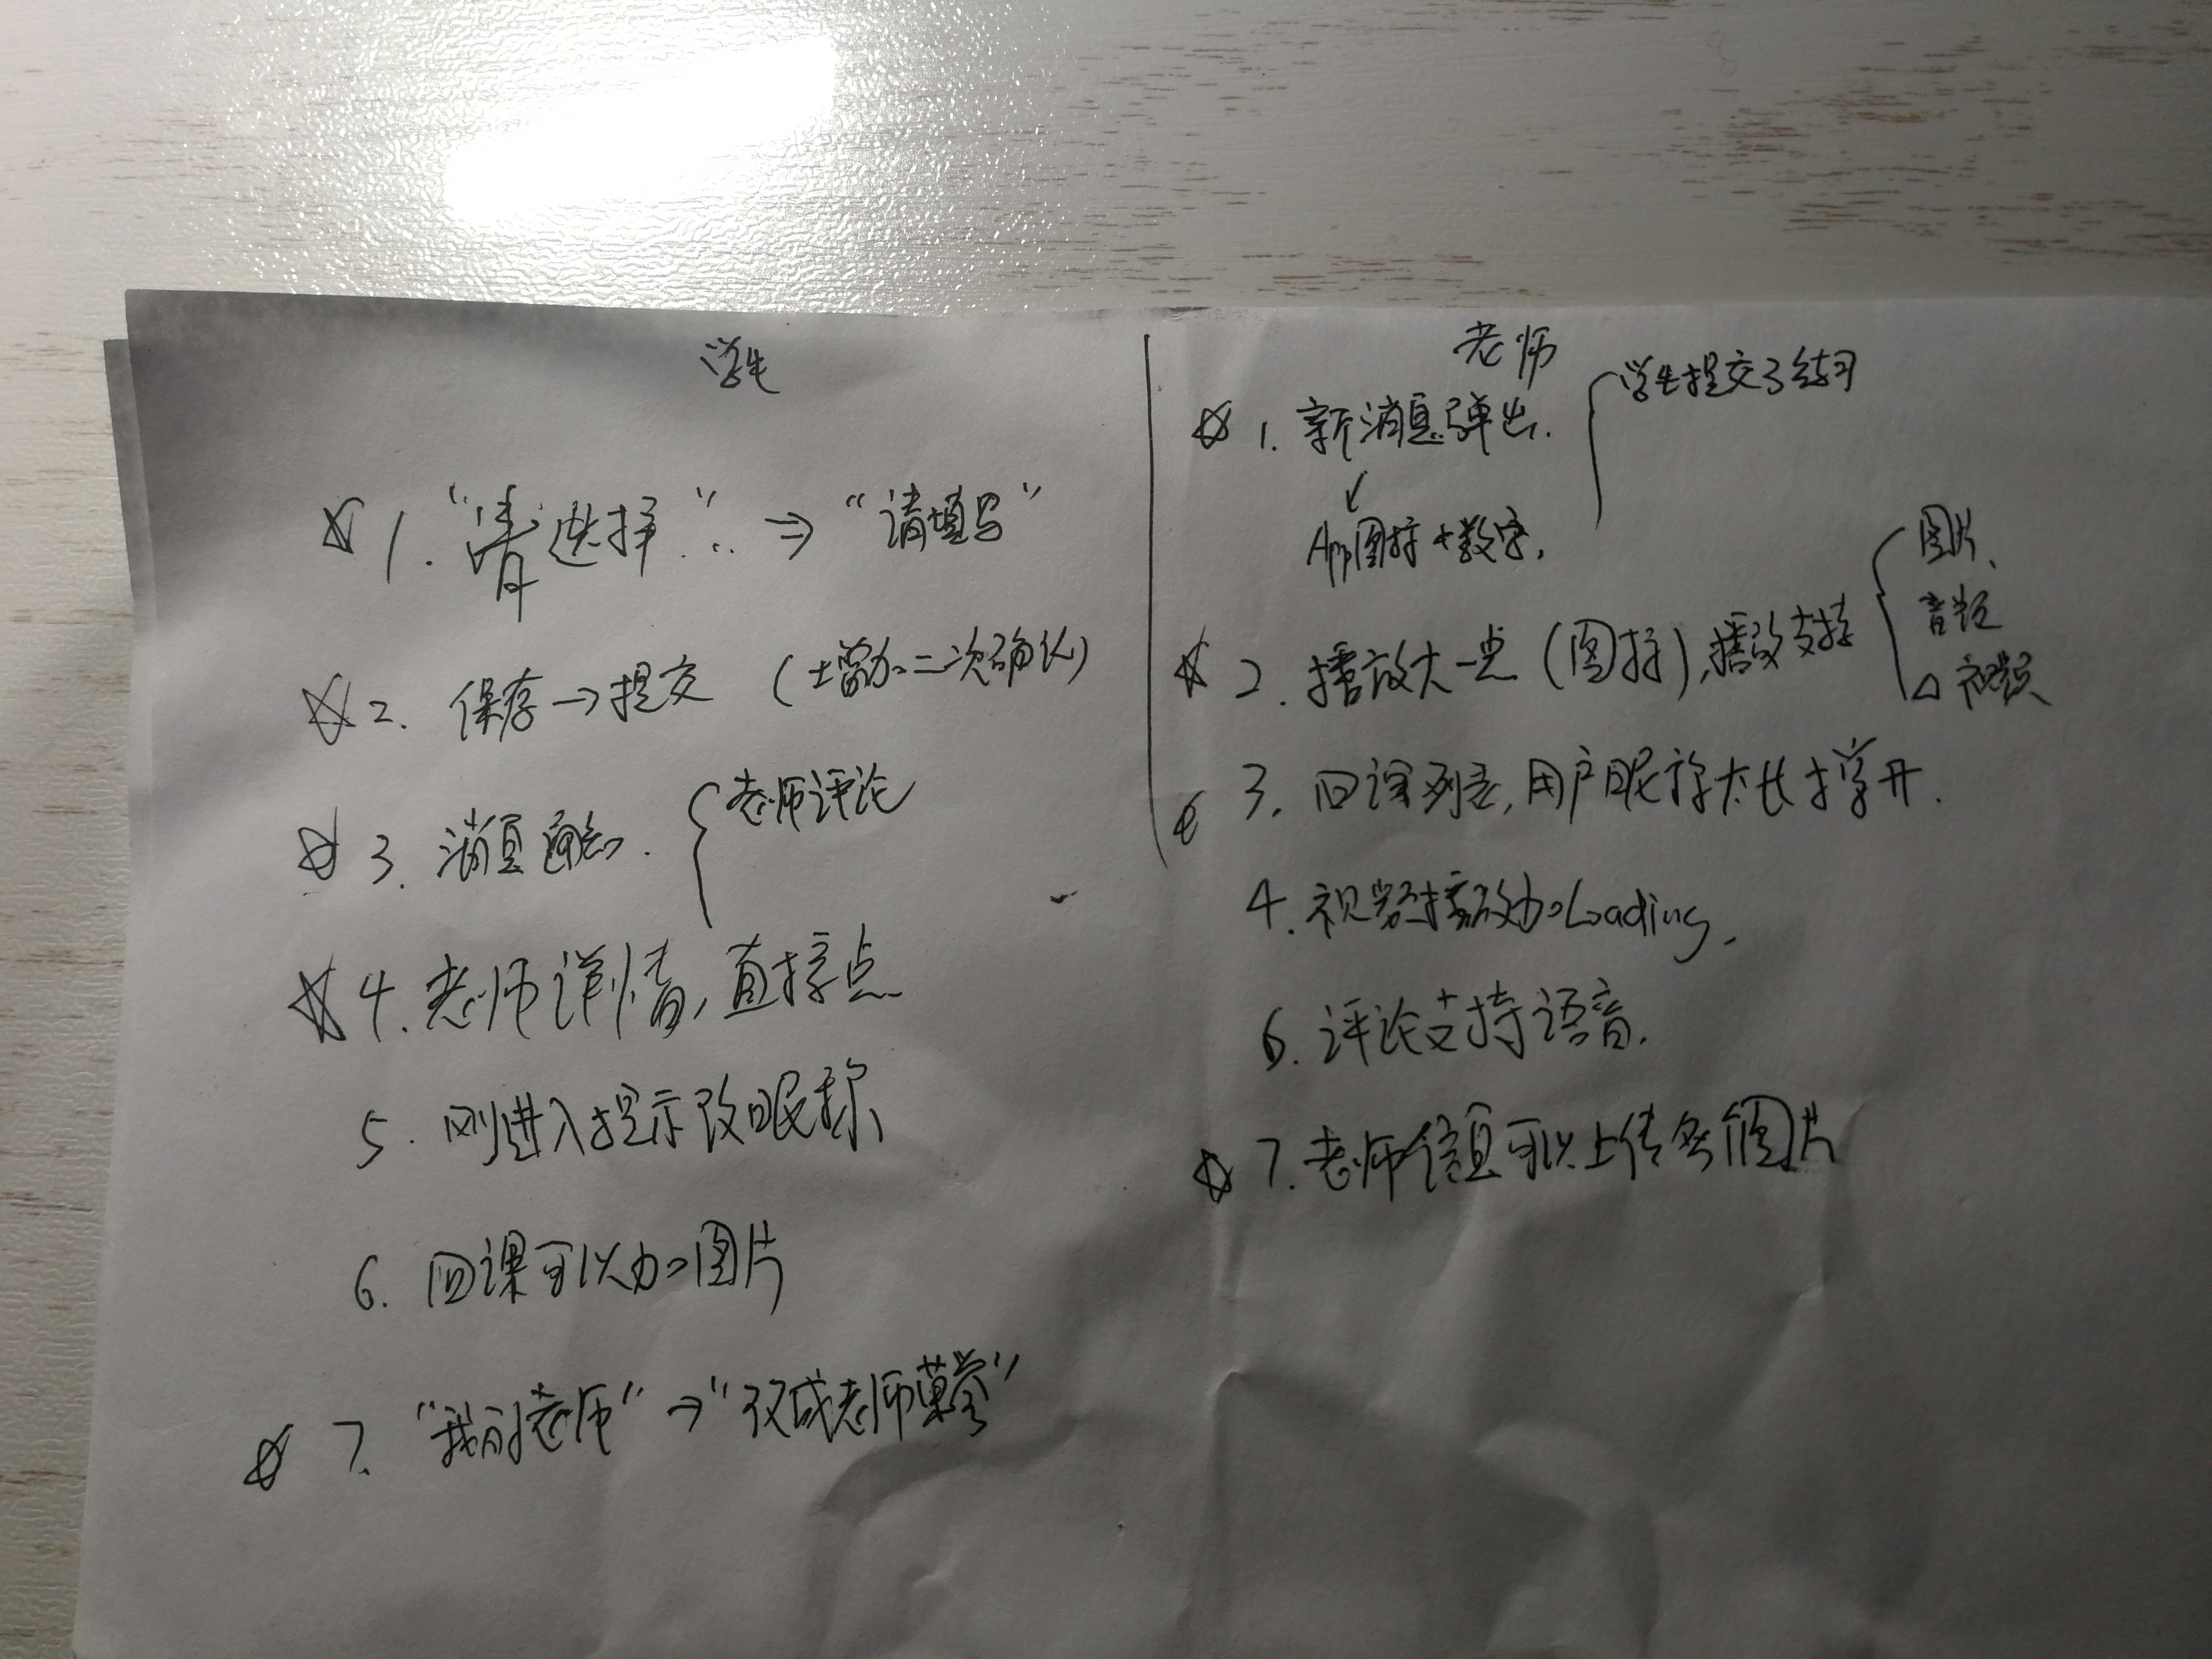 学生
☆ 1. “请选择”... ⇒ “请填写”
☆ 2. 保存→提交 (增加二次确认)
☆ 3. 消息通知. { 老师评论
☆ 4. 老师详情, 直接点
5. 刚进入提示改昵称
6. 回课可以加图片
☆ 7. “我的老师” → “双成老师薰莹”
老师
☆ 1. 新消息弹出. { 学生提交了练习
↙
App图标+数字.
☆ 2. 播放大一点 (图标), 播放支持 { 图片、
音频
△ 视频
3. 回课列表, 用户昵称太长撑开.
4. 视频播放加Loading.
6. 评论支持语音.
☆ 7. 老师信息可以上传多个图片